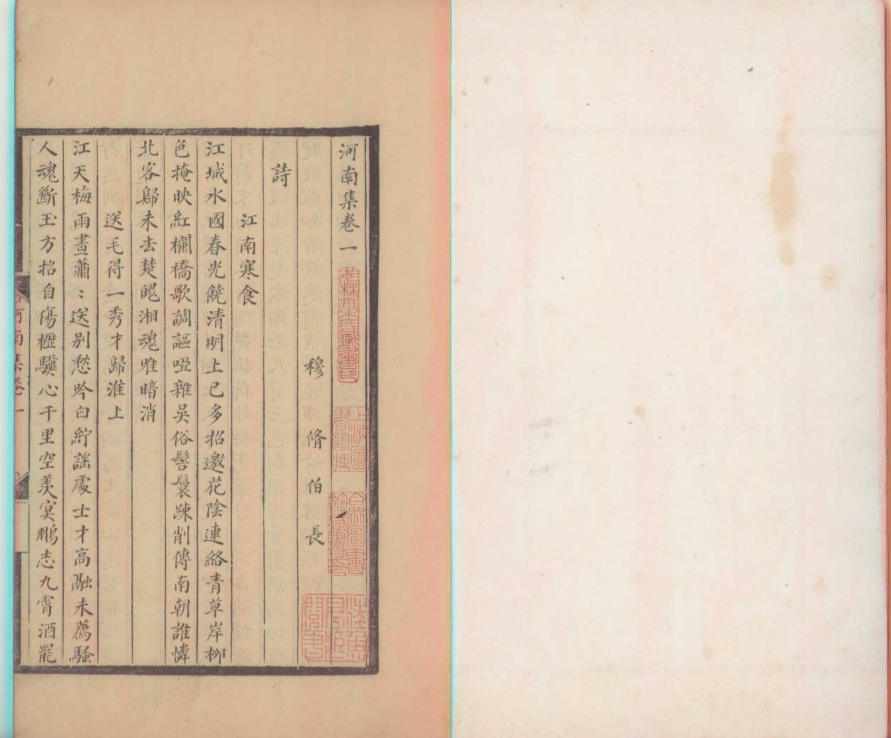 河南集卷一
穆脩伯長
詩
江南寒食
江城水國春光饒清明上巳多招邀花陰連絡青草岸柳
色掩映紅欄橋歌調謳啞雜吳俗髻鬟疎削傳南朝誰憐
北客歸未去楚魄湘魂唯暗消
送毛得一秀才歸淮上
江天梅雨晝蕭〻送別愁吟白紵謡處士才高融未薦騷
人魂斷玉方招自傷櫪驥心千里空羡冥鵬志九霄酒罷
河南集卷一